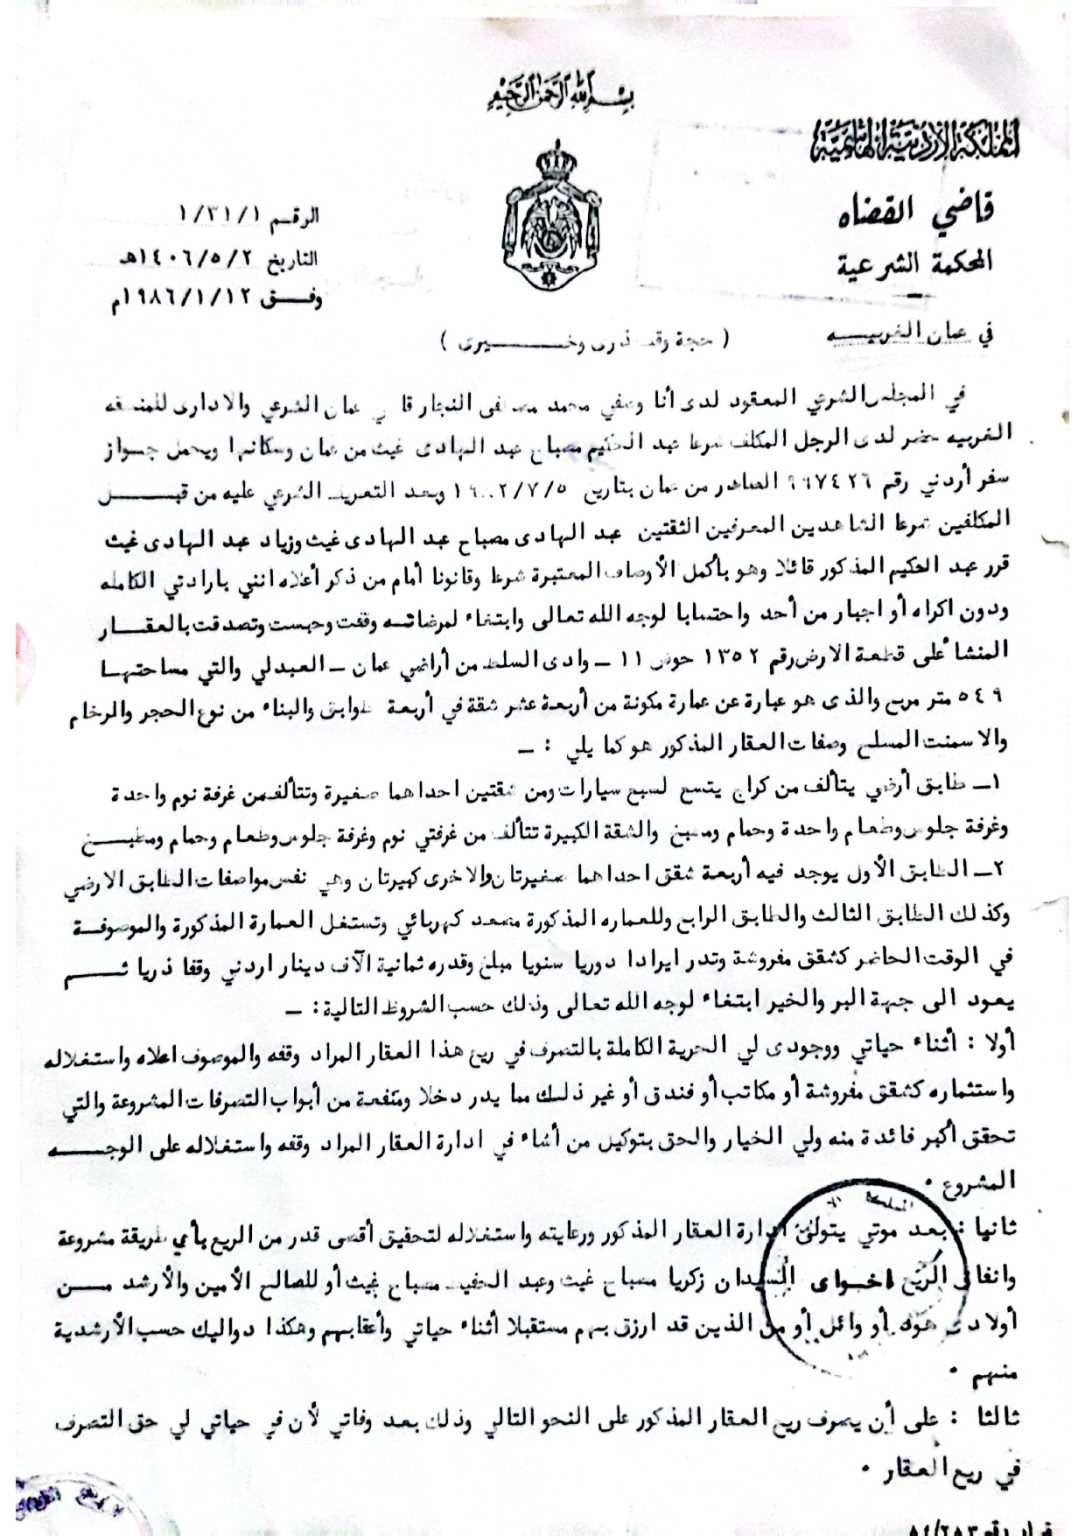 بسم الله الرحمن الرحيم
المملكة الأردنية الهاشمية
قاضي القضاه
المحكمة الشرعية
في عمان الغربيـــه
الرقـم ١/٣١/١
التاريخ ١٤٠٦/٥/٢هـ
وفــق ١٩٨٦/١/١٢م
( حجة وقف ذرى وخـــيرى )
في المجلس الشرعي المعقود لدى أنا وصفي محمد مصطفى النجار قاضي عمان الشرعي والادارى للمنطقه
الغربيه حضر لدى الرجل المكلف شرعا عبد الحكيم مصباح عبد الهادى غيث من عمان وسكانها ويحمل جـواز
سفر أردني رقم الصادر من عمان بتاريخ وبعد التعريف الشرعي عليه من قبـــل
المكلفين شرعا الشاهدين المعرفين الثقتين عبد الهادى مصباح عبد الهادى غيث وزياد عبد الهادى غيث
قرر عبد الحكيم المذكور قائلا وهو بأكمل الأوصاف المعتبرة شرعا وقانونا أمام من ذكر أعلاه انني بارادتي الكامله
ودون اكراه أو اجبار من أحد واحتسابا لوجه الله تعالى وابتغاء لمرضاتـه وقفت وحبست وتصدقت بالعقـــار
المنشأ على قطعة الارض رقم ١٣٥٢ حوض ١١ ـ وادى السلط من أراضي عمان ـ العبدلي والتي مساحتهـا
٥٤٩ متر مربع والذى هو عبارة عن عمارة مكونة من أربعة عشر شقة في أربعة طوابق والبناء من نوع الحجر والرخام
والاسمنت المسلح وصفات العقار المذكور هو كما يلي : ـ
١ـ طابق أرضي يتألف من كراج يتسع لسبع سيارات ومن شقتين احداهما صغيرة وتتألف من غرفة نوم واحدة
وغرفة جلوس وطعام واحدة وحمام ومطبخ والشقة الكبيرة تتألف من غرفتي نوم وغرفة جلوس وطعام وحمام ومطبــخ
٢ـ الطابق الأول يوجد فيه أربعة شقق احداهما صغيرتان والاخرى كبيرتان وهي نفس مواصفات الطابق الارضي
وكذلك الطابق الثالث والطابق الرابع وللعماره المذكورة مصعد كهربائي وتستغل العمارة المذكورة والموصوفـة
في الوقت الحاضر كشقق مفروشة وتدر ايرادا دوريا سنويا مبلغ وقدره ثمانية الآف دينار اردني وقفا ذريا ثـــم
يعود الى جهة البر والخير ابتغاء لوجه الله تعالى وذلك حسب الشروط التالية : ـ
أولا : أثناء حياتي ووجودى لي الحرية الكاملة بالتصرف في ريع هذا العقار المراد وقفه والموصوف اعلاه واستغلاله
واستثماره كشقق مفروشة أو مكاتب أو فندق أو غير ذلك مما يدر دخلا ومنفعة من أبواب التصرفات المشروعة والتي
تحقق أكبر فائدة منه ولي الخيار والحق بتوكيل من أشاء في ادارة العقار المراد وقفه واستغلاله على الوجـــه
المشروع .
ثانيا : بعد موتي يتولى ادارة العقار المذكور ورعايته واستغلاله لتحقيق أقصى قدر من الريع بأي طريقة مشروعة
وانفاق الريع اخواى السيدان زكريا مصباح غيث وعبد الحفيظ مصباح غيث أو للصالح الأمين والأرشد مـــن
أولادى أو وائل أو من الذين قد ارزق بهم مستقبلا أثناء حياتي وأعقابهم وهكذا دواليك حسب الأرشدية
منهم .
ثالثا : على أن يصرف ريع العقار المذكور على النحو التالي وذلك بعد وفاتي لأن في حياتي لي حق التصرف
في ريع العقار .